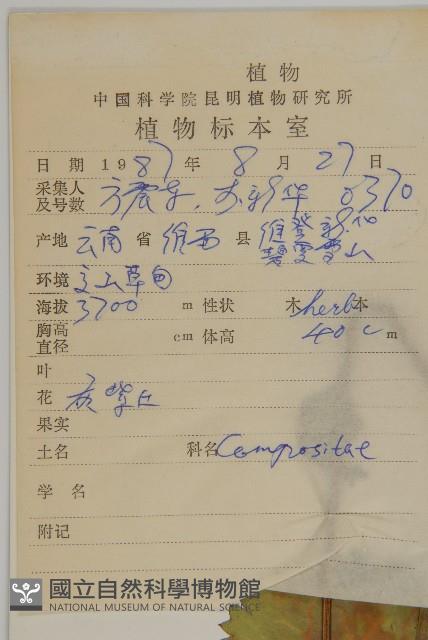 植物
中国科学院昆明植物研究所
植物标本室
日期 1987年 8月 27日
采集人
及号数 方震东, 0370
产地 云南省 维西县 维登
碧 雪山
环境 草甸
海拔 3700 m 性状 木 herb 本
胸高
直径 cm 体高 40 cm
叶
花 灰紫红
果实
土名 科名 Compositae
学名
附记
國立自然科學博物館
NATIONAL MUSEUM OF NATURAL SCIENCE